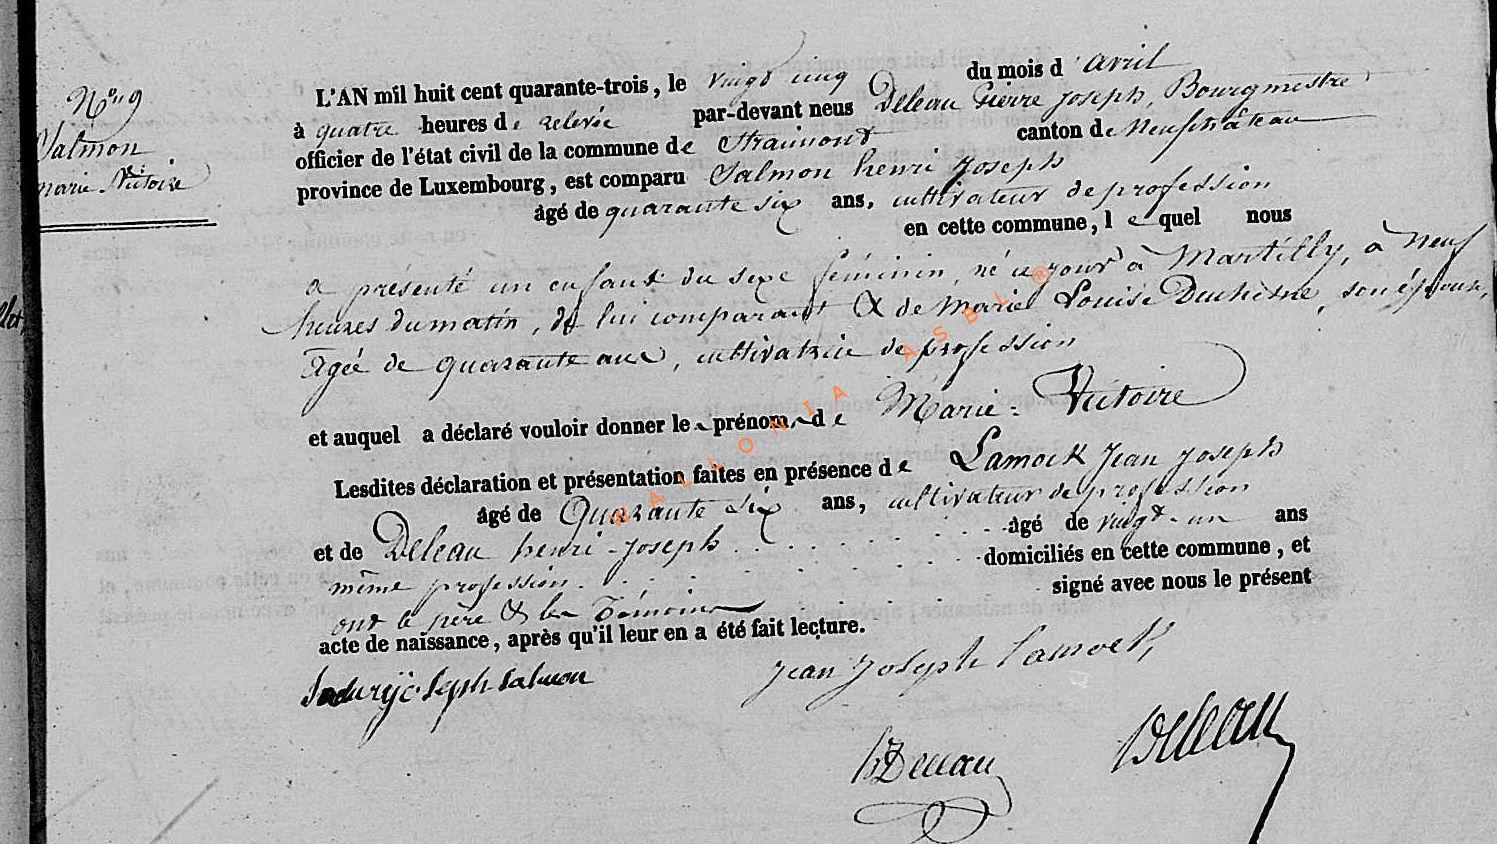 N° 9
Salmon
marie Victoire
L'AN mil huit cent quarante-trois, le vingt cinq du mois d'avril
à quatre heures de relevée par-devant nous Deleau Pierre Joseph, Bourgmestre
officier de l'état civil de la commune de Straimont canton de Neufchâteau
province de Luxembourg, est comparu Salmon henri Joseph
âgé de quarante six ans, cultivateur de profession
en cette commune, lequel nous
a présenté un enfant du sexe féminin, né ce jour à Martilly, à neuf
heures du matin, de lui comparant & de Marie Louise Duchesne, son épouse,
Agée de quarante ans, cultivatrice de profession
et auquel a déclaré vouloir donner les prénoms de Marie-Victoire
Lesdites déclaration et présentation faites en présence de Lamock Jean Joseph
âgé de Quarante six ans, cultivateur de profession
et de Deleau henri-Joseph âgé de vingt-un ans
même profession domiciliés en cette commune, et
ont le père & les Témoins signé avec nous le présent
acte de naissance, après qu'il leur en a été fait lecture.
Joseph Salmon
Jean Joseph Lamock
h Deleau
Deleau
WALLONIA ASBL ®